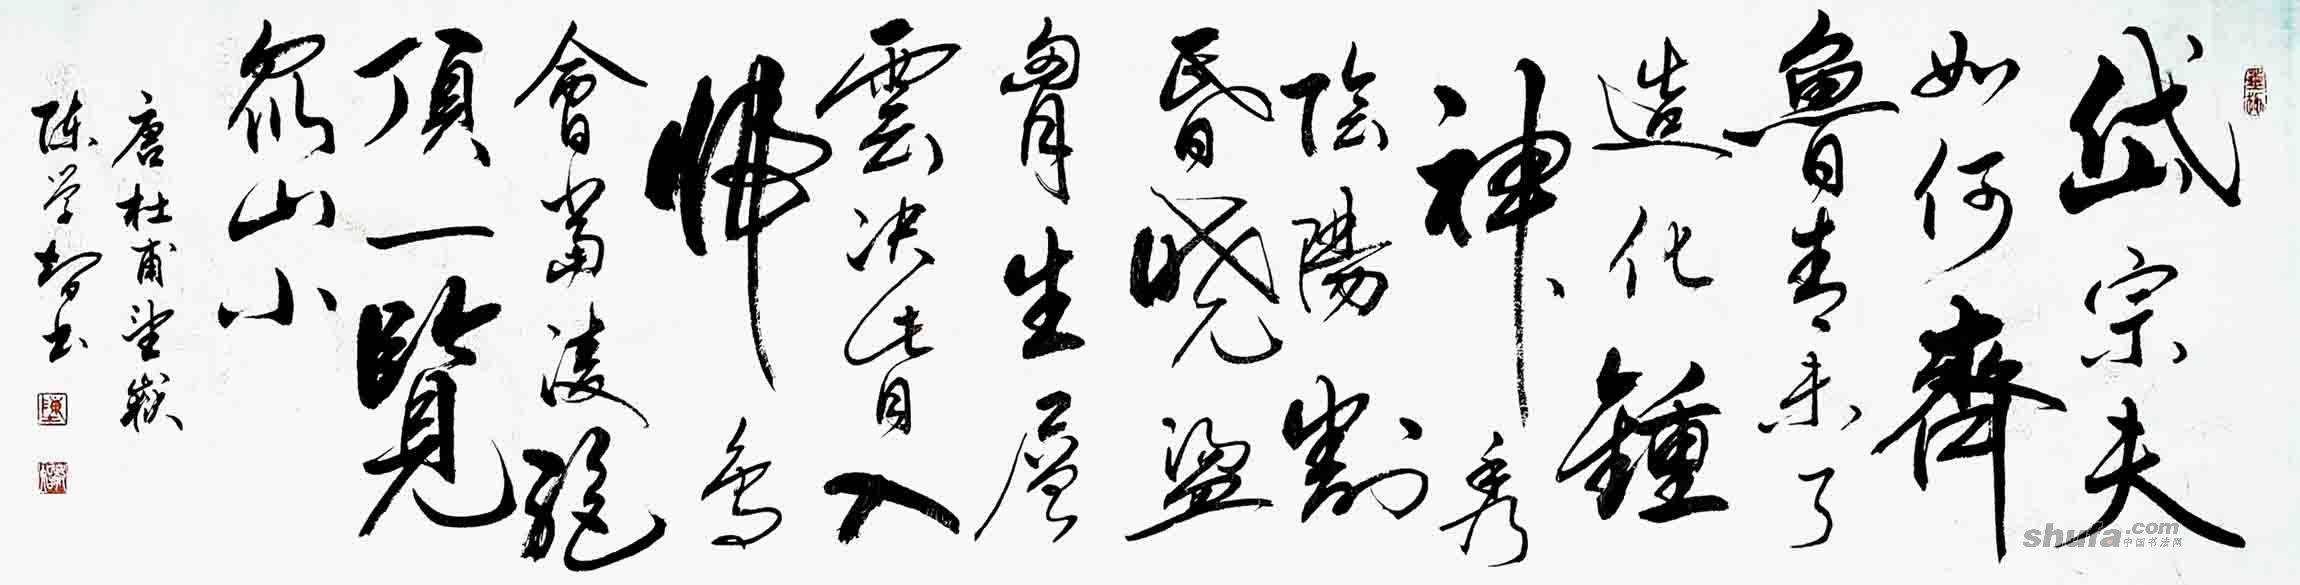 岱宗夫
如何齊
魯青未了
造化鍾
神秀
陰陽割
昏晓盪
胷生層
雲决眥入
歸鳥
會當凌絕
頂一覽
眾山小
唐杜甫望嶽
陈学智书
shufa.com
中国书法网